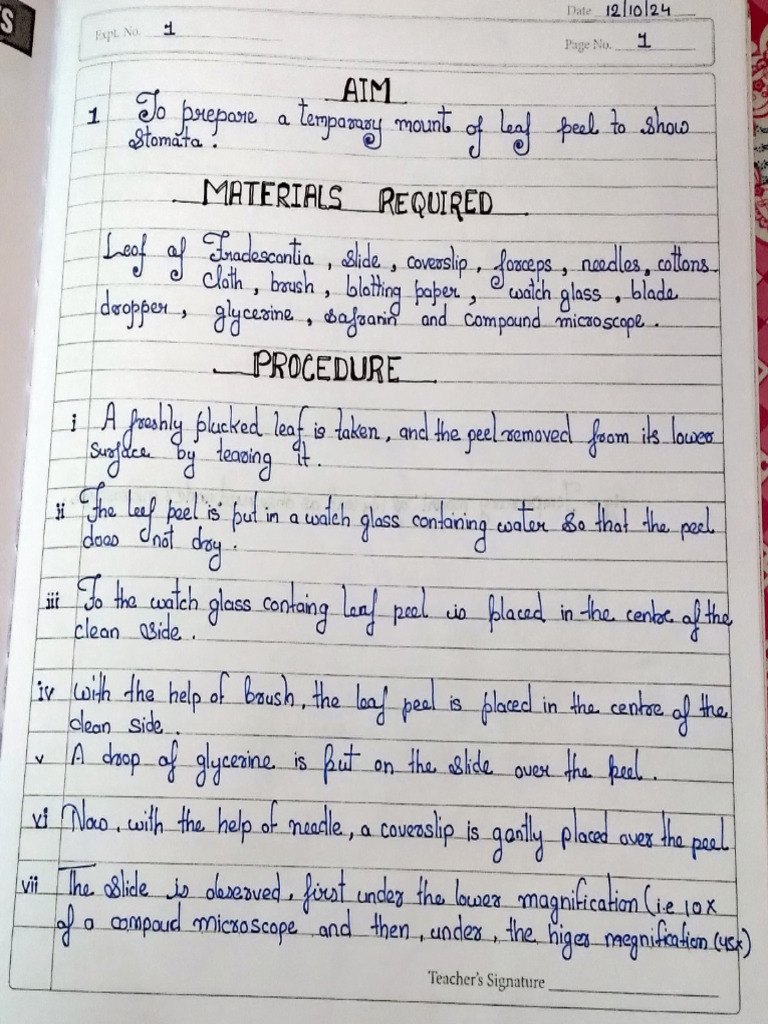 S
Date 12/10/24
Expt. No. 1
Page No. 1
AIM
1 To prepare a temparary mount of leaf peel to show
stomata.
MATERIALS REQUIRED
Leaf of Tradescantia, slide, coverslip, forceps, needles, cottons
cloth, brush, blotting paper, watch glass, blade
dropper, glycerine, safranin and compound microscope.
PROCEDURE
i A freshly plucked leaf is taken, and the peel removed from its lower
surface by tearing it.
ii The leef peel is put in a watch glass contaning water so that the peel
does not dry.
iii To the watch glass containg leaf peel is placed in the centre of the
clean side.
iv With the help of brush, the leaf peel is placed in the centre of the
clean side.
v A drop of glycerine is put on the slide over the peel.
vi Now, with the help of needle, a coverslip is gently placed over the peel
vii The slide is observed, first under the lower magnification (i.e 10x
of a compoud microscope and then, under, the higer megnification (45x)
Teacher's Signature